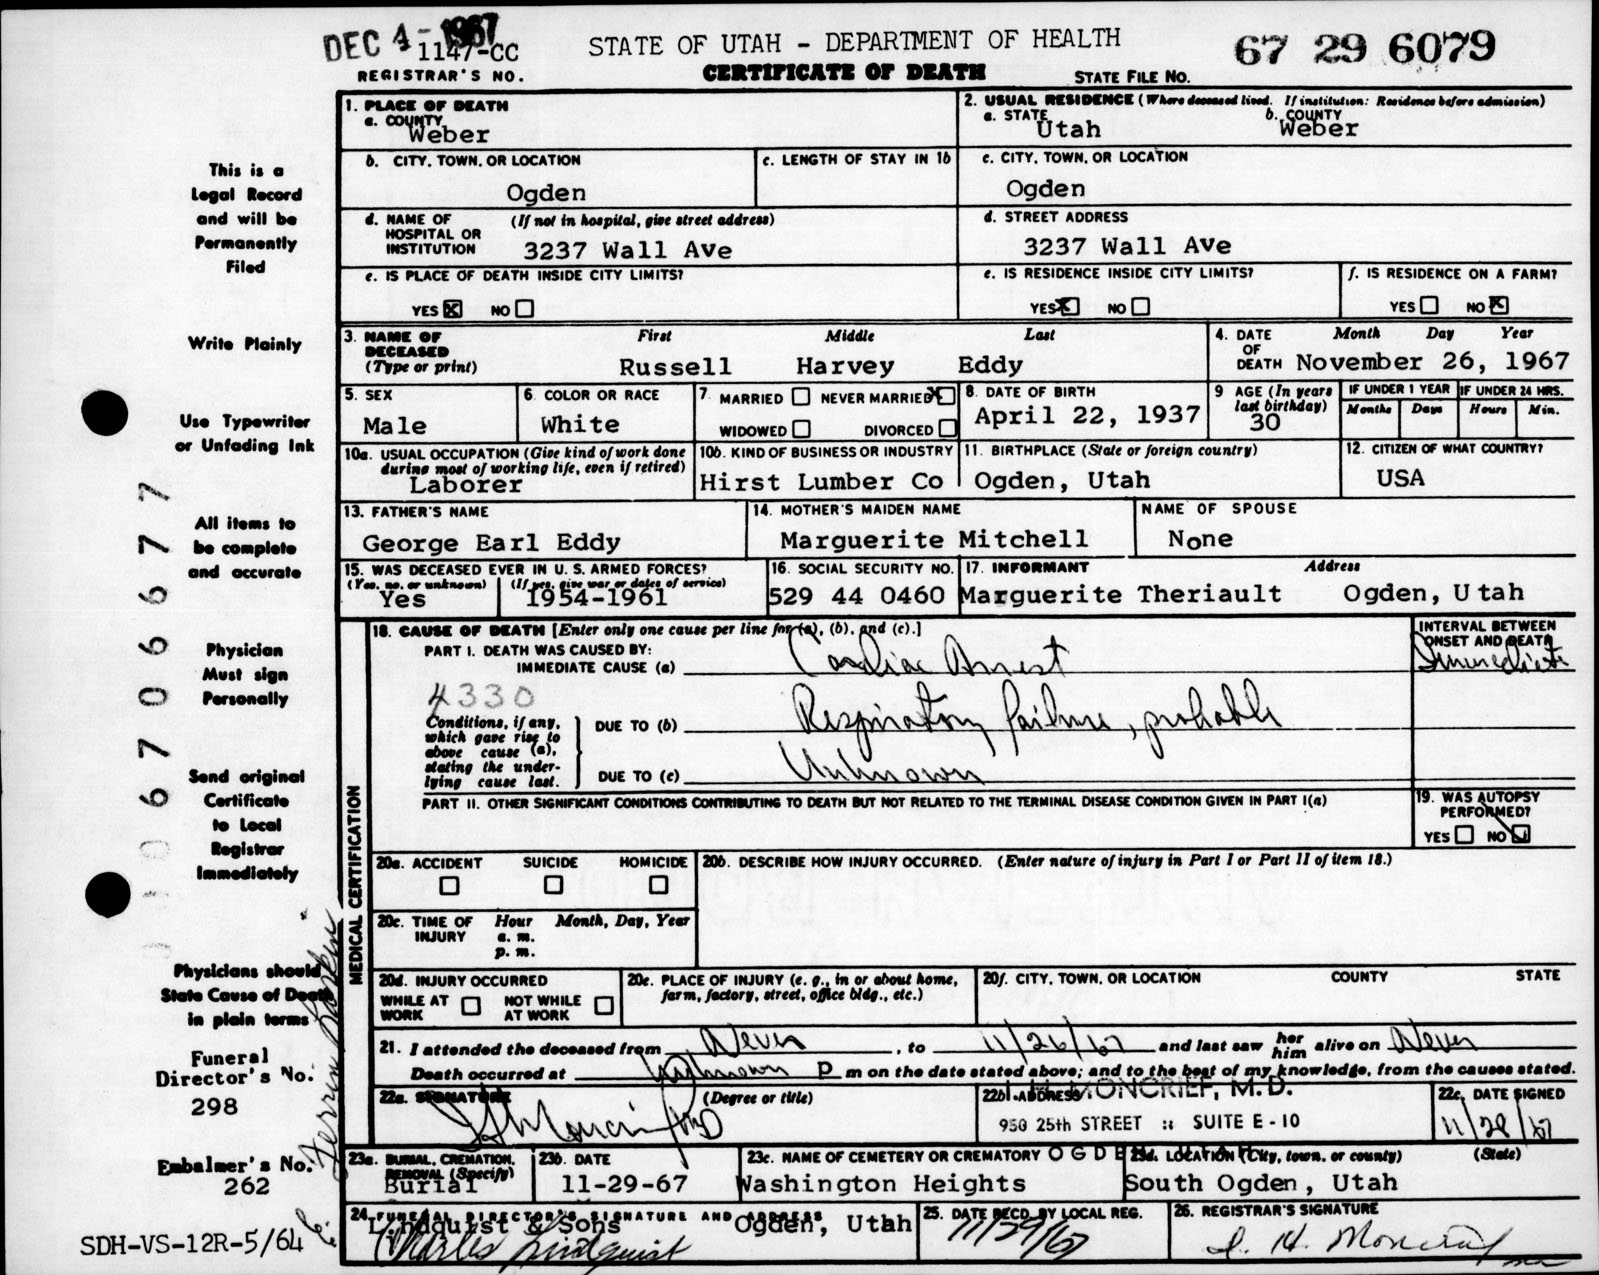 DEC 4 - 1967
1147-CC
REGISTRAR'S NO.
STATE OF UTAH - DEPARTMENT OF HEALTH
CERTIFICATE OF DEATH
STATE FILE NO.
67 29 6079
This is a
Legal Record
and will be
Permanently
Filed
Write Plainly
Use Typewriter
or Unfading Ink
All items to
be complete
and accurate
Physician
Must sign
Personally
Send original
Certificate
to Local
Registrar
Immediately
Physicians should
State Cause of Death
in plain terms
Funeral
Director's No.
298
Embalmer's No.
262
SDH-VS-12R-5/64
67 0 6 6 7 7
1. PLACE OF DEATH
a. COUNTY
Weber
2. USUAL RESIDENCE (Where deceased lived. If institution: Residence before admission)
a. STATE
Utah
b. COUNTY
Weber
b. CITY, TOWN, OR LOCATION
Ogden
c. LENGTH OF STAY IN 1b
c. CITY, TOWN, OR LOCATION
Ogden
d. NAME OF HOSPITAL OR INSTITUTION
(If not in hospital, give street address)
3237 Wall Ave
d. STREET ADDRESS
3237 Wall Ave
e. IS PLACE OF DEATH INSIDE CITY LIMITS?
YES X NO
e. IS RESIDENCE INSIDE CITY LIMITS?
YES X NO
f. IS RESIDENCE ON A FARM?
YES NO X
3. NAME OF DECEASED (Type or print)
First Middle Last
Russell Harvey Eddy
4. DATE OF DEATH
Month Day Year
November 26, 1967
5. SEX
Male
6. COLOR OR RACE
White
7. MARRIED NEVER MARRIED X
WIDOWED DIVORCED
8. DATE OF BIRTH
April 22, 1937
9 AGE (In years last birthday)
30
IF UNDER 1 YEAR
Months Days
IF UNDER 24 HRS.
Hours Min.
10a. USUAL OCCUPATION (Give kind of work done during most of working life, even if retired)
Laborer
10b. KIND OF BUSINESS OR INDUSTRY
Hirst Lumber Co
11. BIRTHPLACE (State or foreign country)
Ogden, Utah
12. CITIZEN OF WHAT COUNTRY?
USA
13. FATHER'S NAME
George Earl Eddy
14. MOTHER'S MAIDEN NAME
Marguerite Mitchell
NAME OF SPOUSE
None
15. WAS DECEASED EVER IN U. S. ARMED FORCES?
(Yes, no, or unknown) (If yes, give war or dates of service)
Yes 1954-1961
16. SOCIAL SECURITY NO.
529 44 0460
17. INFORMANT Address
Marguerite Theriault Ogden, Utah
MEDICAL CERTIFICATION
18. CAUSE OF DEATH [Enter only one cause per line for (a), (b), and (c).]
PART I. DEATH WAS CAUSED BY:
IMMEDIATE CAUSE (a) Cardiac Arrest
INTERVAL BETWEEN ONSET AND DEATH
Immediate
4330
Conditions, if any, which gave rise to above cause (a), stating the underlying cause last.
DUE TO (b) Respiratory failure, probable
DUE TO (c) Unknown
PART II. OTHER SIGNIFICANT CONDITIONS CONTRIBUTING TO DEATH BUT NOT RELATED TO THE TERMINAL DISEASE CONDITION GIVEN IN PART I(a)
19. WAS AUTOPSY PERFORMED?
YES NO
20a. ACCIDENT SUICIDE HOMICIDE
20b. DESCRIBE HOW INJURY OCCURRED. (Enter nature of injury in Part I or Part II of item 18.)
20c. TIME OF INJURY
Hour Month, Day, Year
a. m.
p. m.
20d. INJURY OCCURRED
WHILE AT WORK NOT WHILE AT WORK
20e. PLACE OF INJURY (e. g., in or about home, farm, factory, street, office bldg., etc.)
20f. CITY, TOWN, OR LOCATION COUNTY STATE
21. I attended the deceased from Never, to 11/26/67 and last saw her him alive on Never
Death occurred at Unknown P m on the date stated above; and to the best of my knowledge, from the causes stated.
22a. SIGNATURE (Degree or title)
22b. ADDRESS
MONCRIEF, M.D.
950 25th STREET :: SUITE E - 10
22c. DATE SIGNED
11/28/67
23a. BURIAL, CREMATION, REMOVAL (Specify)
Burial
23b. DATE
11-29-67
23c. NAME OF CEMETERY OR CREMATORY
Washington Heights
23d. LOCATION (City, town, or county) (State)
South Ogden, Utah
24. FUNERAL DIRECTOR'S SIGNATURE AND ADDRESS
Lindquist & Sons Ogden, Utah
Charles Lindquist
25. DATE RECD. BY LOCAL REG.
11/29/67
26. REGISTRAR'S SIGNATURE